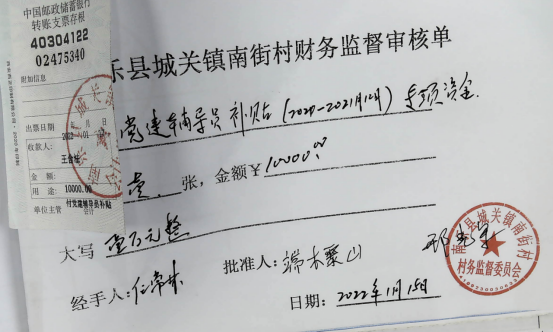 中国邮政储蓄银行
转账支票存根
40304122
02475340
附加信息
出票日期 2022 01 月 日
收款人:
金 额:
用 途: 10000.00
付党建辅导员补贴
单位主管 会计
乐县城关镇南街村财务监督审核单
党建辅导员补贴(2020-2021年12月)专项资金.
壹 张, 金额¥10000.00
大写 壹万元整
经手人:任常林
批准人:端木聚山
日期: 2022年1月15日
南乐县城关镇南街村
村务监督委员会